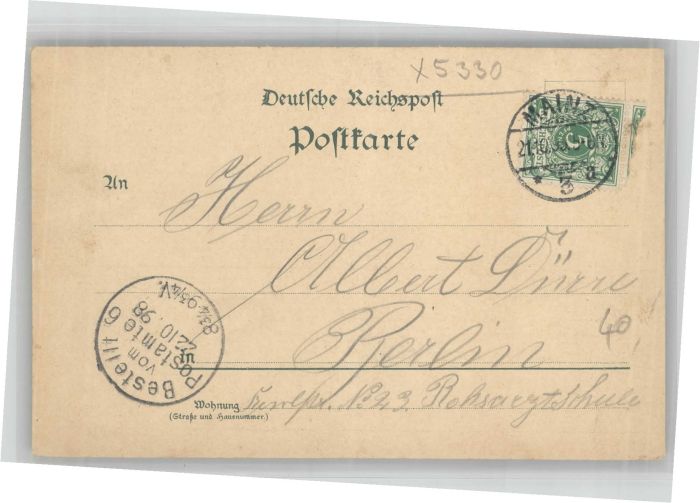 X5330
Deutsche Reichspost
Postkarte
MAINZ
21.10.98
3 a
5
An
Herrn
Albert Dürre
Bestellt
vom
Postamte 6
22.10.98
8¾-9¾ V.
in
Berlin
40,
Wohnung No 23
(Straße und Hausnummer.)